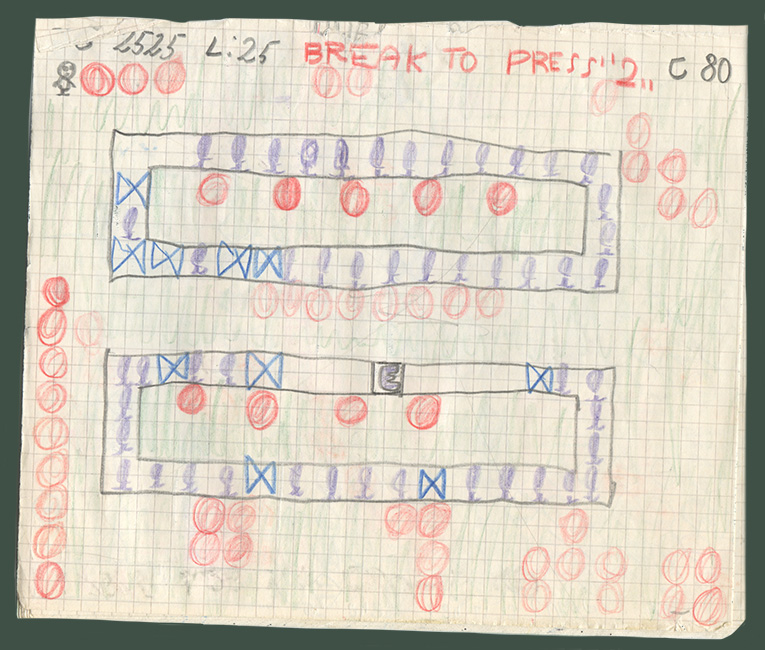 2525 L:25 BREAK TO PRESS "2" C 80